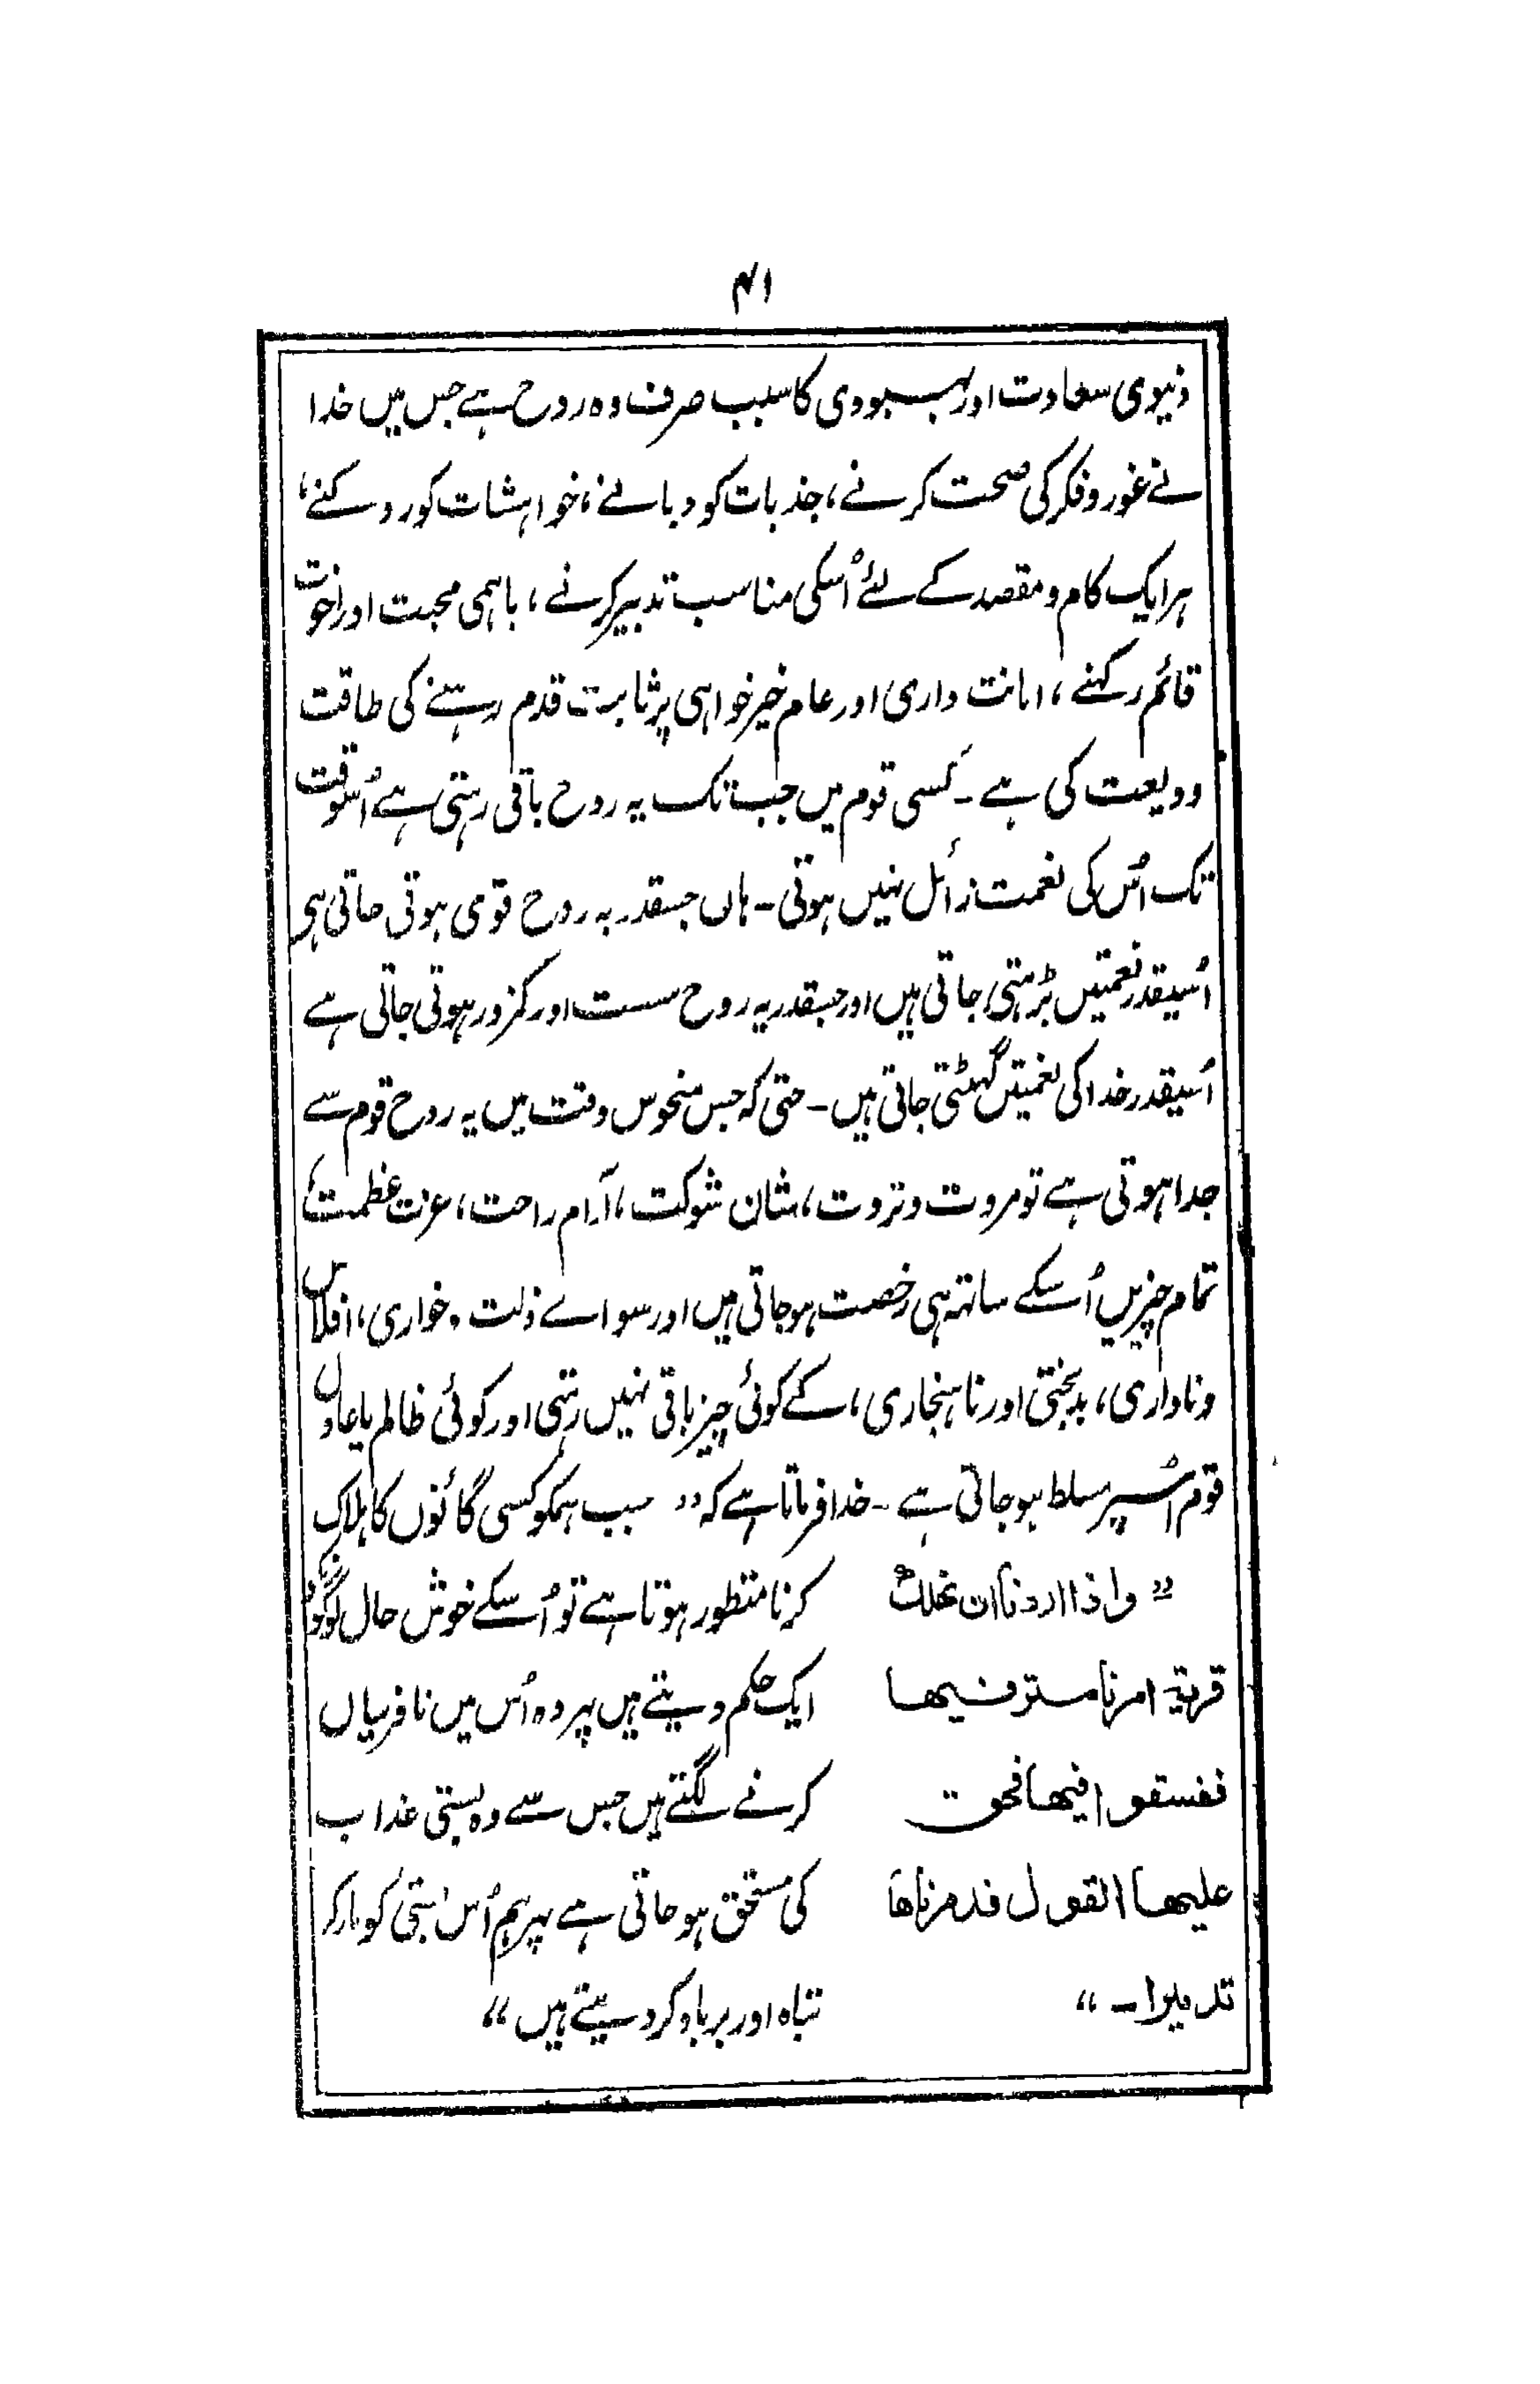 ۴۱
دنیوی سعادت اور بہبودی کا سبب صرف وہ روح ہے جس میں خدا
نے غور و فکر کی صحت کرنے، جذبات کو دبانے، خواہشات کو روکنے،
ہر ایک کام و مقصد کے لئے اُسکی مناسب تدبیر کرنے، باہمی محبت اور اخوت
قائم رکہنے، امانت داری اور عام خیر خواہی پر ثابت قدم رہنے کی طاقت
ودیعت کی ہے ۔ کسی قوم میں جب تک یہ روح باقی رہتی ہے اُسوقت
تک اُس کی نعمت زائل نہیں ہوتی ۔ ہاں جسقدر یہ روح قوی ہوتی جاتی ہی
اُسیقدر نعمتیں بڑہتی جاتی ہیں اور جسقدر یہ روح سست اور کمزور ہوتی جاتی ہے
اُسیقدر خدا کی نعمتیں گہٹتی جاتی ہیں ۔ حتی کہ جس منحوس وقت میں یہ روح قوم سے
جدا ہوتی ہے تو مروت و ثروت، شان شوکت، آرام راحت، عزت عظمت،
تمام چیزیں اُسکے ساتھ ہی رخصت ہو جاتی ہیں اور سواے ذلت و خواری، افلاس
و ناداری، بدبختی اور ناہنجاری، کے کوئی چیز باقی نہیں رہتی اور کوئی ظالم یا عادل
قوم اُسپر مسلط ہو جاتی ہے ۔ خدا فرماتا ہے کہ ,, جب ہمکو کسی گانوں کا ہلاک
,, واذا اردنا ان نھلك کرنا منظور ہوتا ہے تو اُسکے خوش حال لوگونکو
قریۃ امرنا مترفیھا ایک حکم دیتے ہیں پہر وہ اُس میں نافرمیاں
ففسقوا فیھا فحق کرنے لگتے ہیں جس سے وہ بستی عذاب
علیھا القول فدمرناھا کی مستحق ہو جاتی ہے پہر ہم اُس بستی کو مار کر
تدمیرا ۔ ،، تباہ اور برباد کر دیتے ہیں ،،